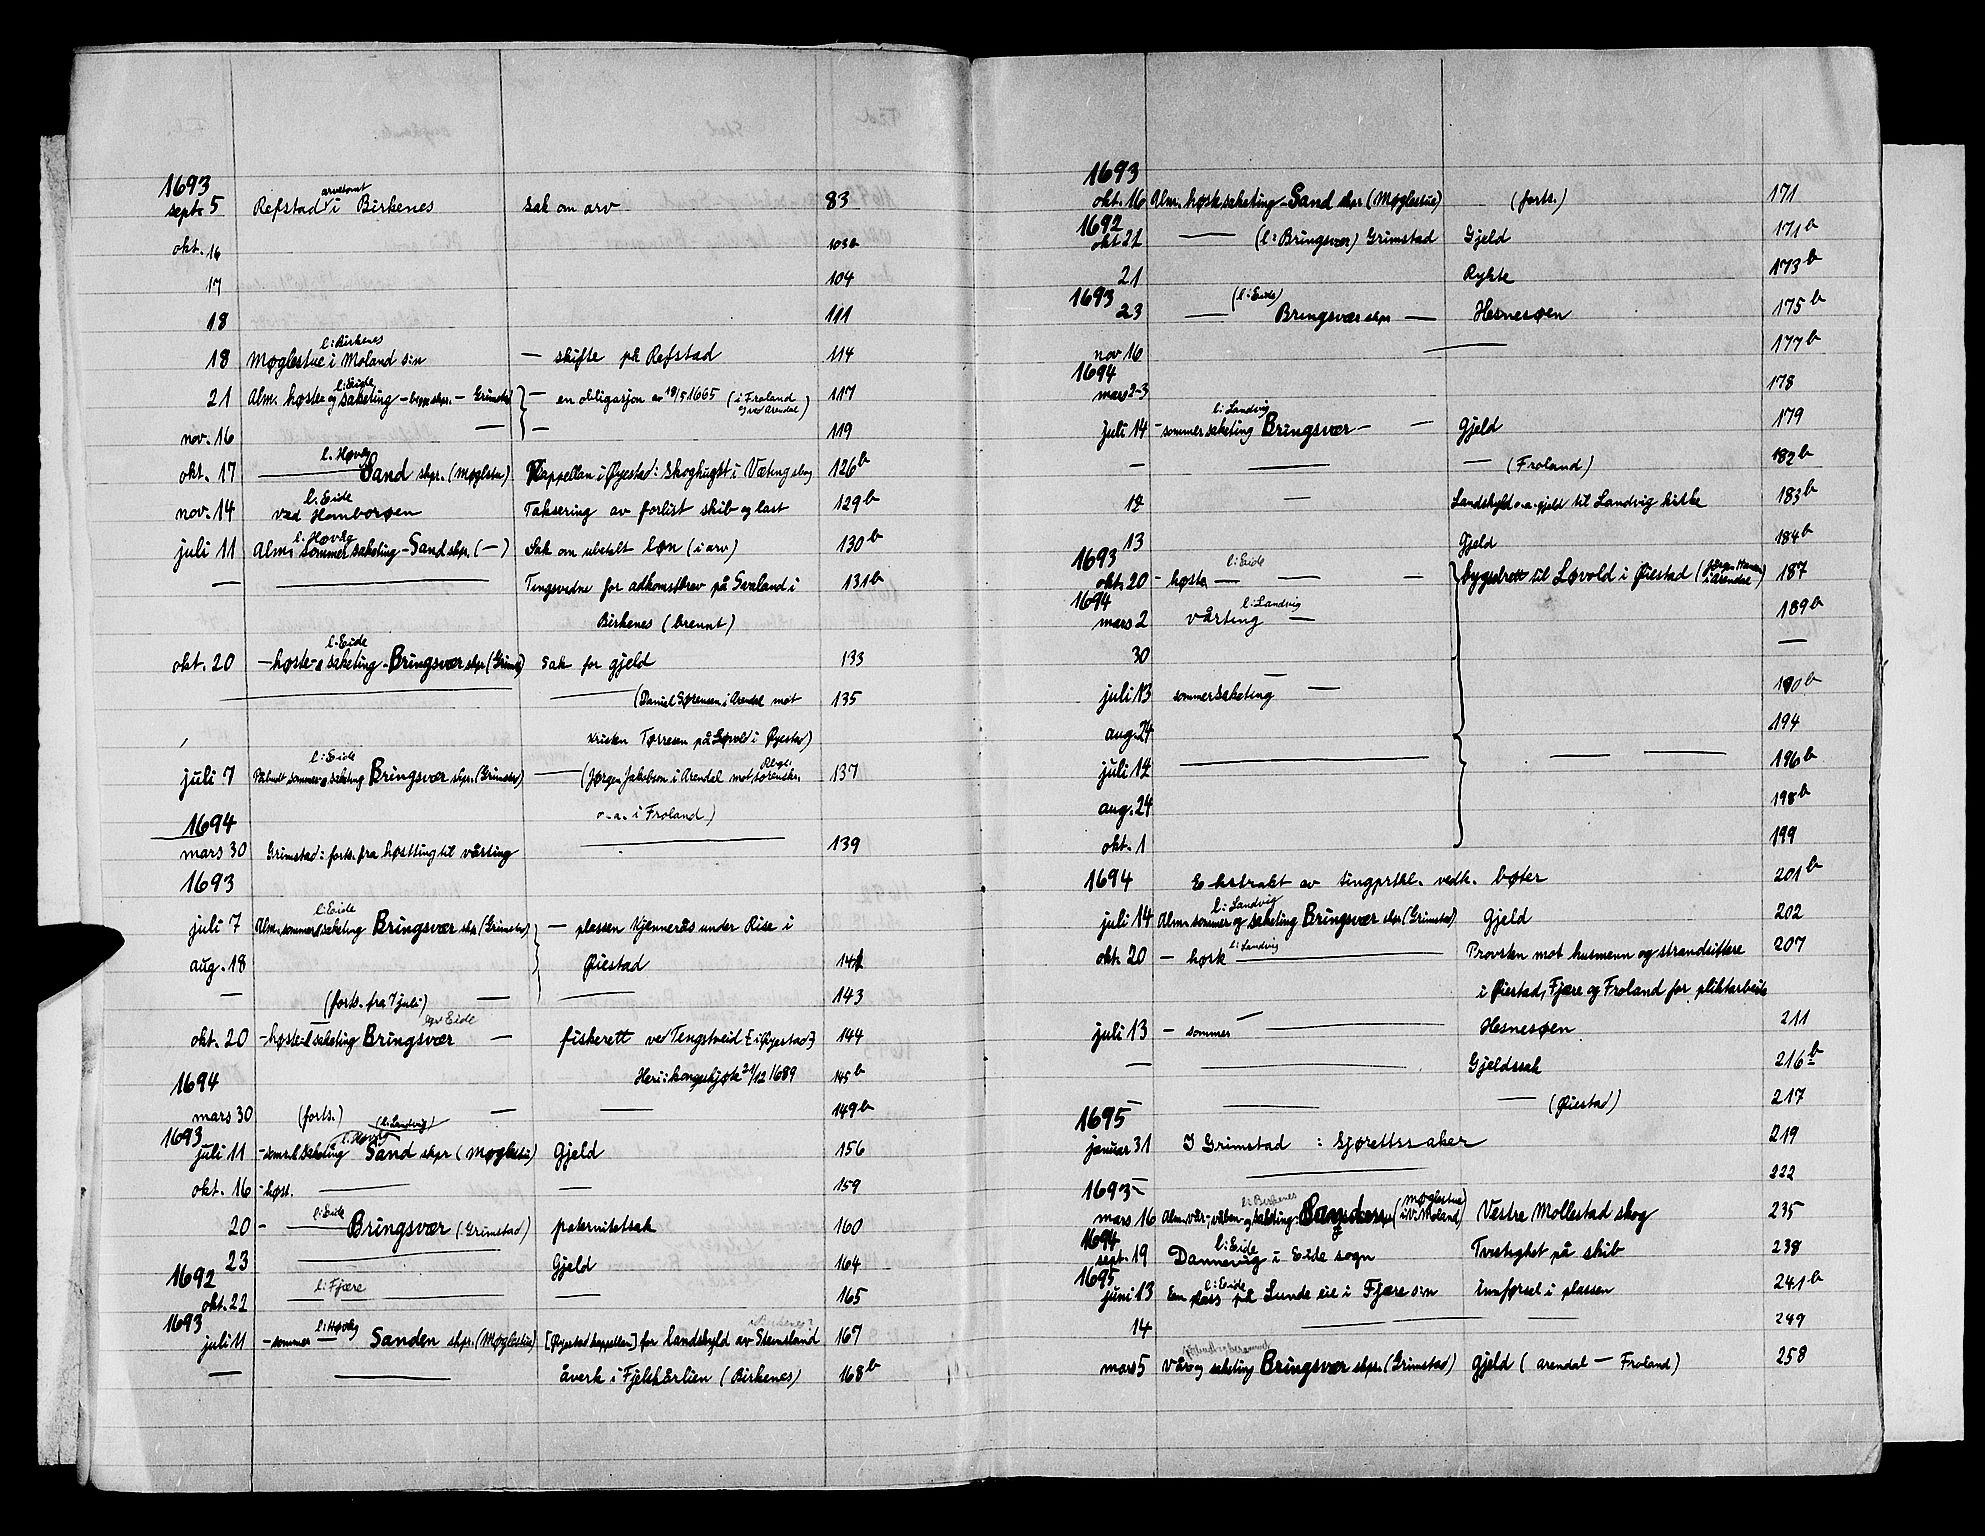 1693
sept. 5 Refstad arvetomt i Birkenes sak om arv 83
okt. 16 103b
17 104
18 111
l: Birkenes
18 Møglestue i Moland s:n — skifte på Refstad 114
l: Eide
21 Alm. høste og saketing — — Grimstad — en obligasjon av 18/5 1665 (i Froland og ved Arendal) 117
nov. 16 — — 119
l. Høvåg
okt. 17 — Sand skpr. (Møglstu) Kappellan i Øyestad: Skoghugst i Væting skog 126b
l. Eide
nov. 14 ved Homborøen Taksering av forlist skib og last 129b
l. Høvåg
juli 11 Alm. sommer saketing – Sand skpr. (—) Sak om ubetalt løn (i arv) 130b
— — Tingsvidne for adkomstbrev på Svaland i 131b
Birkenes (brennt)
l: Eide
okt. 20 — høste- & saketing – Bringsvær skpr (Grimst) Sak for gjeld 133
— — (Daniel Sørensen i Arendal mot 135
kristen Torresen på Løvold i Øyestad)
l: Eide
juli 7 Påbudt sommer & saketing Bringsvær skpr. (Grimstad) — (Jørgen Jakobson i Arendal mot Sørensen 137
1694 o. a. i Froland)
mars 30 Grimstad: forts. fra høstting til vårting — 139
1693
l: Eide
juli 7 Alm. sommer & saketing Bringsvær skp (Grimstad) — plassen Kjennerås under Rise i
aug. 18 Øiestad 141
— (forts. fra 7 juli) — — 143
Eide
okt. 20 — høste- & saketing Bringsvær — fiskerett ved Tengsneid [i Øyestad] 144
1694 Heri: kongeskjøte 21/12 1689 145b
mars 30 (forts.) — — 149b
1693 l: Høvåg (l: Landvig)
juli 11 — som. & saketing Sand skpr (Møglestu) Gjeld 156
okt. 16 — høst. — — 159
l: Eide
20 — — Bringsvær (Grimstad) paternitetsak 160
23 — Gjeld 164
1692 l: Fjære
okt. 22 — — 165
1693 l: Høvåg
juli 11 — sommer — Sanden skpr. (Møglestue) [Øyestad kappellan] for landskyld av Stemsland i Birkenes? 167
— — åverk i Fjelskærlien (Birkenes) 168b
1693
okt. 16 Alm. høst saketing – Sand skpr (Møglestue) (forts.) 171
1692
okt 21 — (l: Bringsvær) Grimstad Gjeld 171b
21 Rykte 173b
1693 (l: Eide)
23 — Bringsvær skpr — Hesnesøen 175b
nov 16 — 177b
1694
mars 2-3 178
l: Landvig
juli 14 — sommer saketing Bringsvær — — Gjeld 179
— — — (Froland) 182b
14 — Landskyld o. a. gjeld til Landvig kirke 183b
13 Gjeld 184b
1693 l: Eide
okt. 20 — høste — — — bygselrett til Løvold i Øiestad (Jørgen Hansen i Arendal) 187
1694 l: Landvig
mars 2 vårting — 189b
30 —
juli 13 sommersaketing — 190b
aug. 24 194
juli 14 — — — 196b
aug. 24 198b
okt. 1 199
1694 Ekstrakt av tingprtkl. vedk. bøter 201b
l: Landvig
juli 14 Alm. sommer og saketing Bringsvær skpr (Grimstad) Gjeld 202
l: Landvig
okt. 20 — høst — Provsten mot husmenn og strandsittere 207
i Øiestad, Fjære og Froland for pliktarbeide
juli 13 — sommer — — Hesnesøen 211
— — Gjeldssak 216b
— — — (Øiestad) 217
1695
januar 31 I Grimstad : Sjørettssaker 219
— 222
1693 l: Birkenes
mars 16 Alm. vår-, våben- og saketing: Sanden (Møglestue i V. Moland) Vestre Mollestad skog 235
1694 l: Eide
sept. 19 Dannevig i Eide sogn Tvistighet på skib 238
1695 l: Eide
juni 13 Em plass på Lunde eie i Fjære s:n Innførsel i plassen 241b
14 — — — 249
mars 5 Vår og saketing Bringsvær skpr. (Grimstad) Gjeld (Arendal — Froland) 258